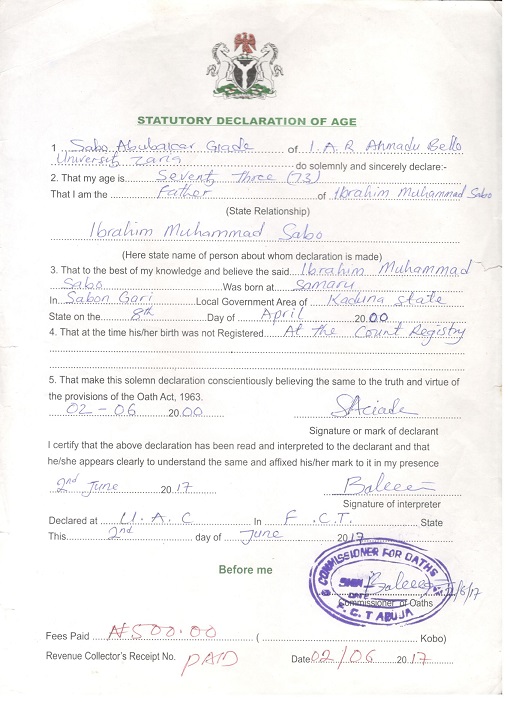 STATUTORY DECLARATION OF AGE
1 Sabo Abubakar Giade of I.A.R Ahmadu Bello
University Zaria do solemnly and sincerely declare:-
2. That my age is Seventy Three (73)
That I am the Father of Ibrahim Muhammad Sabo
(State Relationship)
Ibrahim Muhammad Sabo
(Here state name of person about whom declaration is made)
3. That to the best of my knowledge and believe the said Ibrahim Muhammad
Sabo Was born at Samaru
In Sabon Gari Local Government Area of Kaduna State
State on the 8th Day of April 2000
4. That at the time his/her birth was not Registered At the Count Registry
5. That make this solemn declaration conscientiously believing the same to the truth and virtue of
the provisions of the Oath Act, 1963.
02-06 2000
Signature or mark of declarant
I certify that the above declaration has been read and interpreted to the declarant and that
he/she appears clearly to understand the same and affixed his/her mark to it in my presence
2nd June 2017
Signature of interpreter
Declared at U.A.C In F.C.T. State
This 2nd day of June 2017
Before me
COMMISSIONER FOR OATHS
SIGN
DATE
F.C.T ABUJA
Commissioner of Oaths
Fees Paid ₦500.00 ( Kobo)
Revenue Collector's Receipt No. PAID Date 02/06 2017